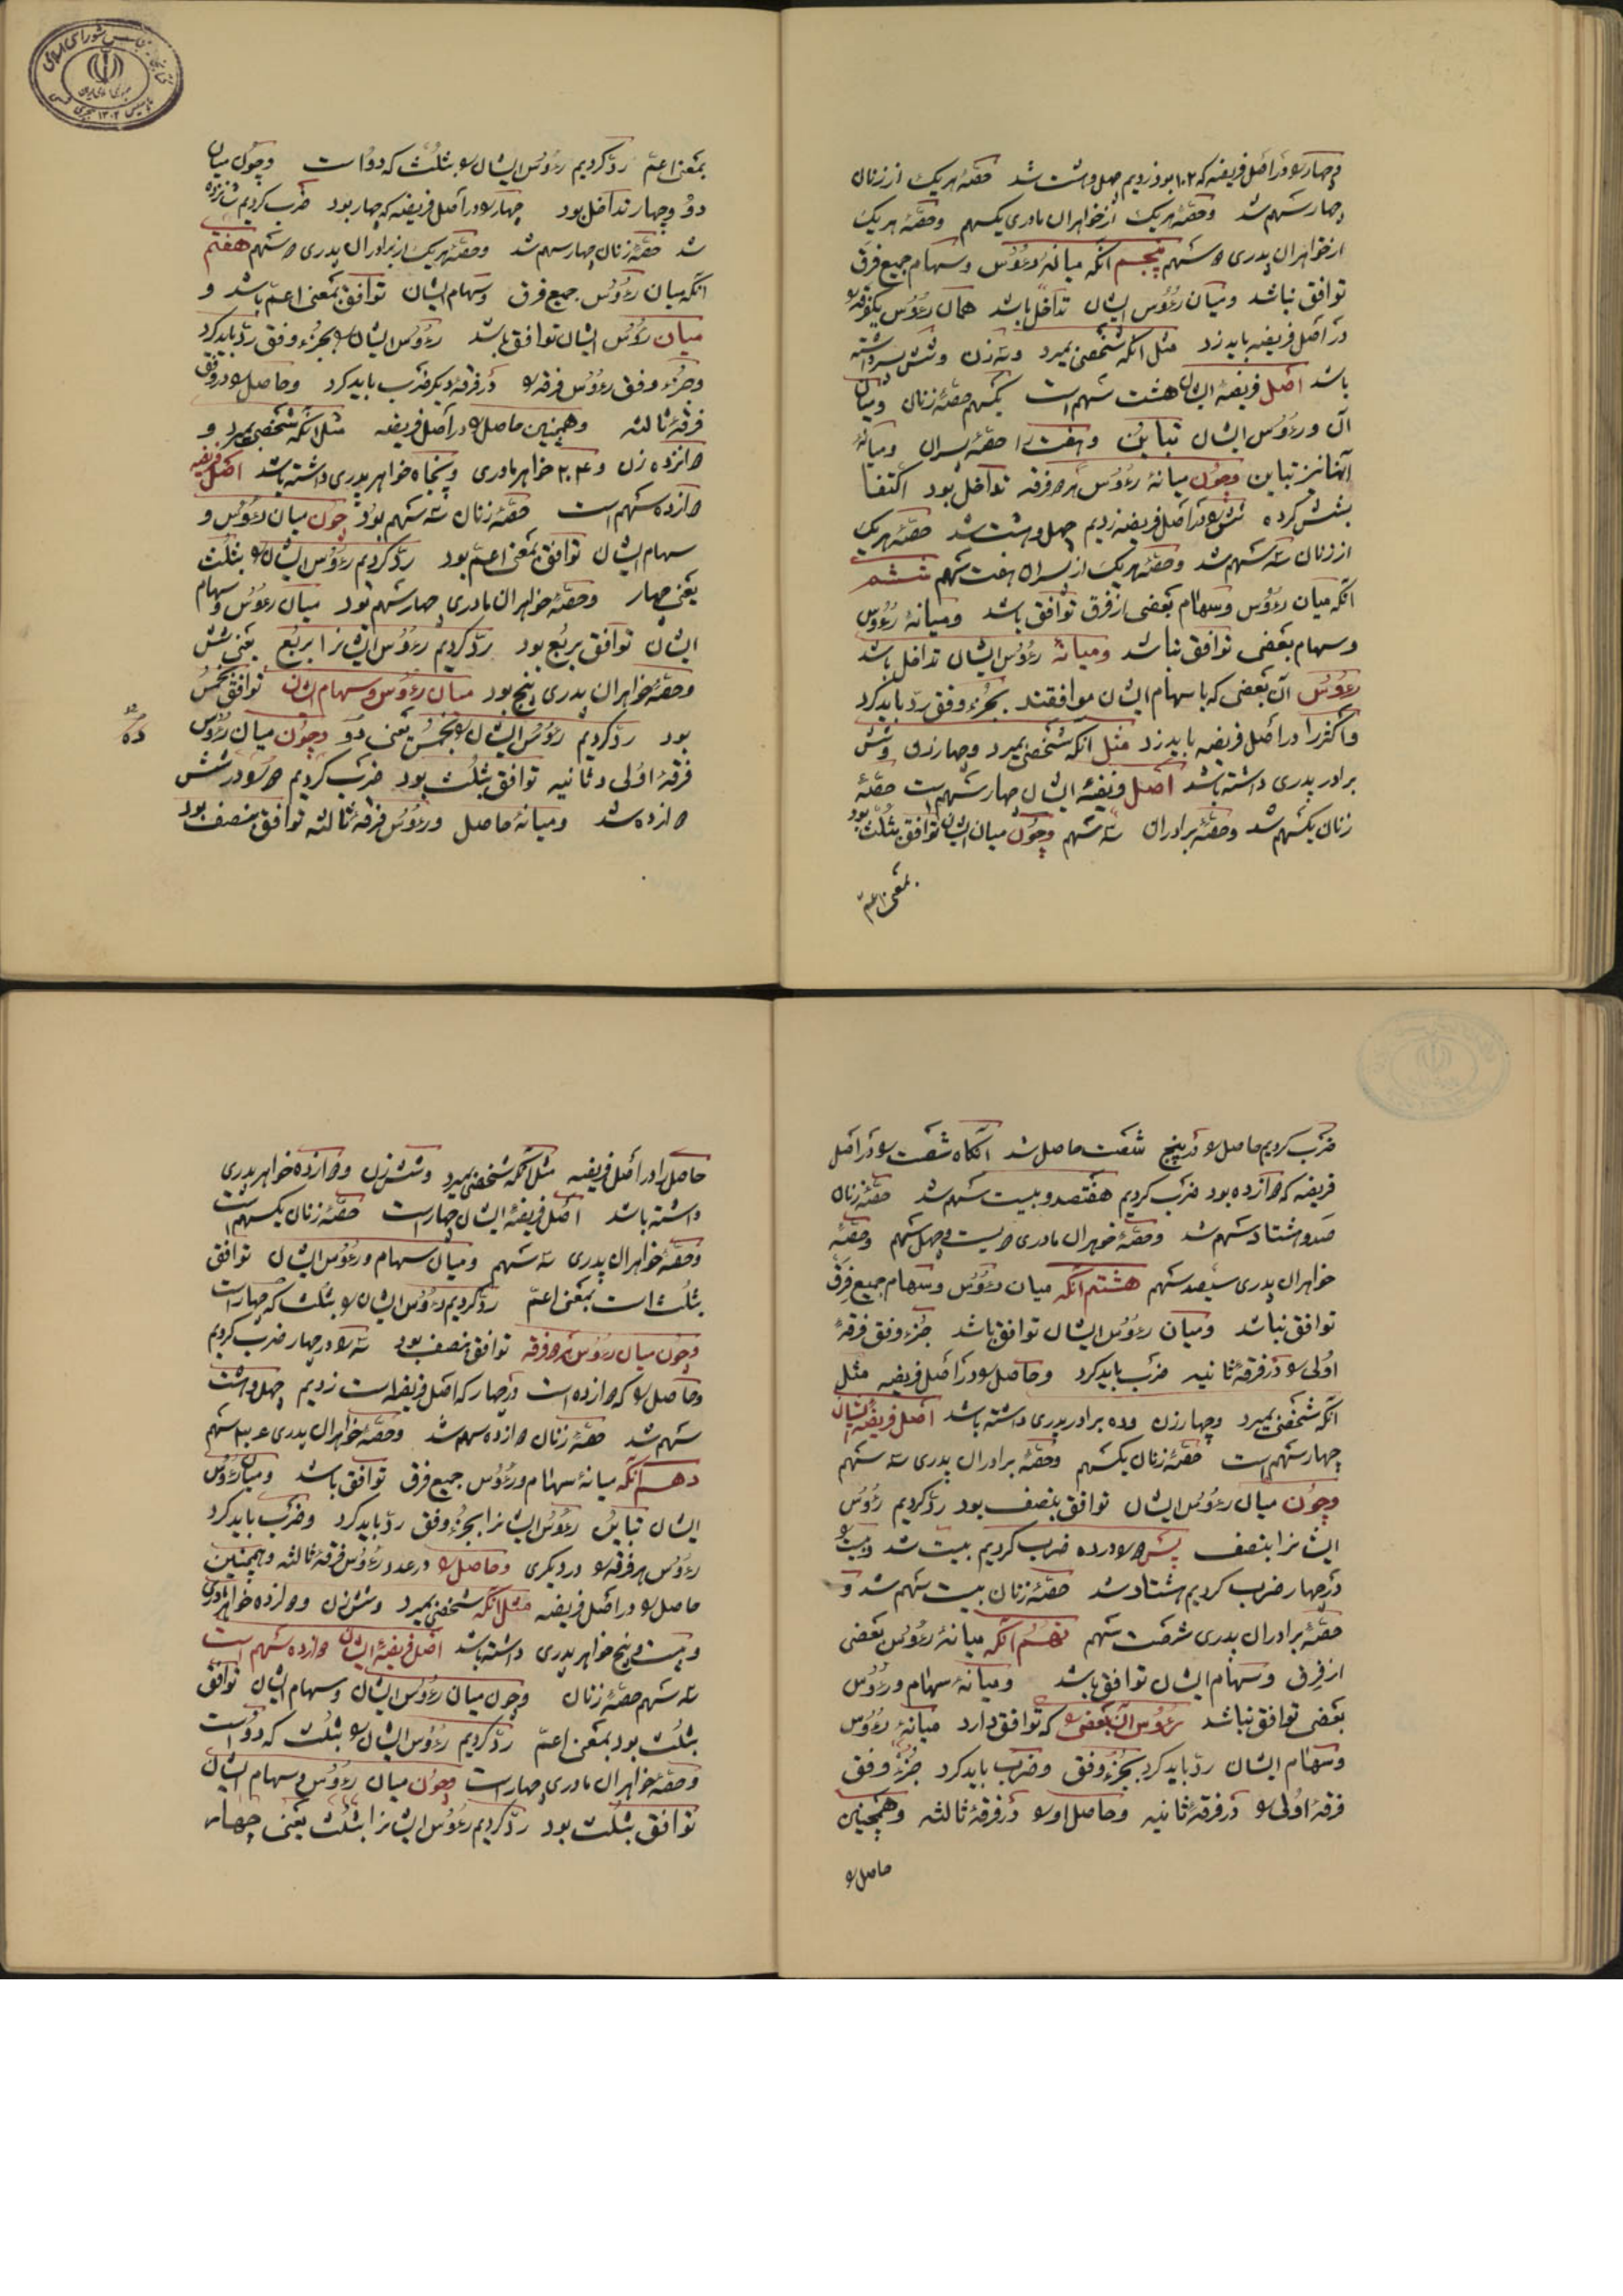 و چهار را در اصل فریضه که ۱۰۲ بود زدیم چهل و هشت شد حصّهٔ هر یک از زنان
چهار سهم شد و حصّهٔ هر یک از خواهران مادری یکسهم و حصّهٔ هر یک
از خواهران پدری ۲ سهم پنجم آنکه میانهٔ رءُوس و سهام جمیع فرق
توافق نباشد و میان رءُوس ایشان تداخل باشد همان رءُوس یکفرقه را
در اصل فریضه باید زد مثل آنکه شخصی بمیرد و سه زن و شش پسر داشته
باشد اصل فریضهٔ ایشان هشت سهم است یکسهم حصّهٔ زنان و میان
آن و رءُوس ایشان تباین و هفت را حصّهٔ پسران و میانهٔ
اینها نیز تباین و چون میانهٔ رءُوس هر ۲ فرقه تداخل بود اکتفا
بشش کرده شش را در اصل فریضه زدیم چهل و هشت شد حصّهٔ هر یک
از زنان سه سهم شد و حصّهٔ هر یک از پسران هفت سهم ششم
آنکه میان رءُوس و سهام بعضی از فرق توافق باشد و میانهٔ رءُوس
و سهام بعضی توافق نباشد و میانهٔ رءُوس ایشان تداخل باشد
رءُوس آن بعضی که با سهام ایشان موافقند بجزء وفق ردّ باید کرد
و اکثر را در اصل فریضه باید زد مثل آنکه شخصی بمیرد و چهار زن و شش
برادر پدری داشته باشد اصل فریضهٔ ایشان چهار سهم است حصّهٔ
زنان یکسهم شد و حصّهٔ برادران سه سهم و چون میان ایشان توافق بثلث بود
بمعنی اعمّ
بمعنی اعمّ ردّ کردیم رءُوس ایشان را بثلث که دو است و چون میان
دو و چهار تداخل بود چهار را در اصل فریضه که چهار بود ضرب کردیم شانزده
شد حصّهٔ زنان چهار سهم شد و حصّهٔ هر یک از برادران پدری ۲ سهم هفتم
آنکه میان رءُوس جمیع فرق و سهام ایشان توافق بمعنی اعمّ باشد و
میان رءُوس ایشان توافق باشد رءُوس ایشان را بجزء وفق ردّ باید کرد
و جزء وفق رءُوس فرقه را در فرقهٔ دیگر ضرب باید کرد و حاصل را در وفق
فرقهٔ ثالثه و همچنین حاصل را در اصل فریضه مثل آنکه شخصی بمیرد و
۲انزده زن و ۲۰۴ خواهر مادری و پنجاه خواهر پدری داشته باشد اصل فریضه
۲ازده سهم است حصّهٔ زنان سه سهم بود چون میان رءُوس و
سهام ایشان توافق بمعنی اعمّ بود ردّ کردیم رءُوس ایشان را بثلث
یعنی چهار و حصّهٔ خواهران مادری چهار سهم بود میان رءُوس و سهام
ایشان توافق بربع بود ردّ کردیم رءُوس ایشانرا بربع یعنی شش
و حصّهٔ خواهران پدری پنج بود میان رءُوس و سهام ایشان توافق بخمس
بود ردّ کردیم رءُوس ایشان را بخمس یعنی دو و چون میان رءُوس
فرقهٔ اولی و ثانیه توافق بثلث بود ضرب کردیم ۲ را در شش
۲ازده شد و میانهٔ حاصل و رءُوس فرقهٔ ثالثه توافق بنصف بود
ضرب کردیم حاصل را در پنج شصت حاصل شد آنگاه شصت را در اصل
فریضه که ۲ازده بود ضرب کردیم هفتصد و بیست سهم شد حصّهٔ زنان
صد و هشتاد سهم شد و حصّهٔ خوهران مادری ۲ویست و چهل سهم و حصّهٔ
خواهران پدری سیصد سهم هشتم آنکه میان رءُوس و سهام جمیع فرق
توافق نباشد و میان رءُوس ایشان توافق باشد جزء وفق فرقهٔ
اولی را در فرقهٔ ثانیه ضرب باید کرد و حاصل را در اصل فریضه مثل
آنکه شخصی بمیرد و چهار زن و ده برادر پدری داشته باشد اصل فریضهٔ ایشان
چهار سهم است حصّهٔ زنان یکسهم و حصّهٔ برادران پدری سه سهم
و چون میان رءُوس ایشان توافق بنصف بود ردّ کردیم رءُوس
ایشانرا بنصف پس ۲ را در ده ضرب کردیم بیست شد و بیست را
در چهار ضرب کردیم هشتاد شد حصّهٔ زنان بیست سهم شد و
حصّهٔ برادران پدری شصت سهم نهم آنکه میانهٔ رءُوس بعضی
از فرق و سهام ایشان توافق باشد و میانهٔ سهام و رءُوس
بعضی توافق نباشد رءُوس آن بعضی را که توافق دارد میانهٔ رءُوس
و سهام ایشان ردّ باید کرد بجزء وفق و ضرب باید کرد جزء وفق
فرقهٔ اولی را در فرقهٔ ثانیه و حاصل او را در فرقهٔ ثالثه و همچنین
حاصل را
حاصل را در اصل فریضه مثل آنکه شخصی بمیرد و شش زن و ۲ازده خواهر پدری
داشته باشد اصل فریضهٔ ایشان چهار است حصّهٔ زنان یکسهم است
و حصّهٔ خواهران پدری سه سهم و میان سهام و رءُوس ایشان توافق
بثلث است بمعنی اعمّ ردّ کردیم رءُوس ایشان را بثلث که چهار است
و چون میان رءُوس هر ۲ فرقه توافق بنصف بود سه را در چهار ضرب کردیم
و حاصل را که ۲ازده است در چهار که اصل فریضه است زدیم چهل و هشت
سهم شد حصّهٔ زنان ۲ازده سهم شد و حصّهٔ خواهران پدری سهم
دهم آنکه میانهٔ سهام و رءُوس جمیع فرق توافق باشد و میان رءُوس
ایشان تباین رءُوس ایشانرا بجزء وفق ردّ باید کرد و ضرب باید کرد
رءُوس هر فرقه را در دیگری و حاصل را در عدد رءُوس فرقهٔ ثالثه و همچنین
حاصل را در اصل فریضه مثل آنکه شخصی بمیرد و شش زن و ۲ازده خواهر مادری
و بیست و پنج خواهر پدری داشته باشد اصل فریضهٔ ایشان ۲ازده سهم است
سه سهم حصّهٔ زنان و چون میان رءُوس ایشان و سهام ایشان توافق
بثلث بود بمعنی اعمّ ردّ کردیم رءُوس ایشان را بثلث که دو است
و حصّهٔ خواهران مادری چهار است و چون میان رءُوس و سهام ایشان
توافق بثلث بود ردّ کردیم رءُوس ایشانرا بثلث یعنی چهار